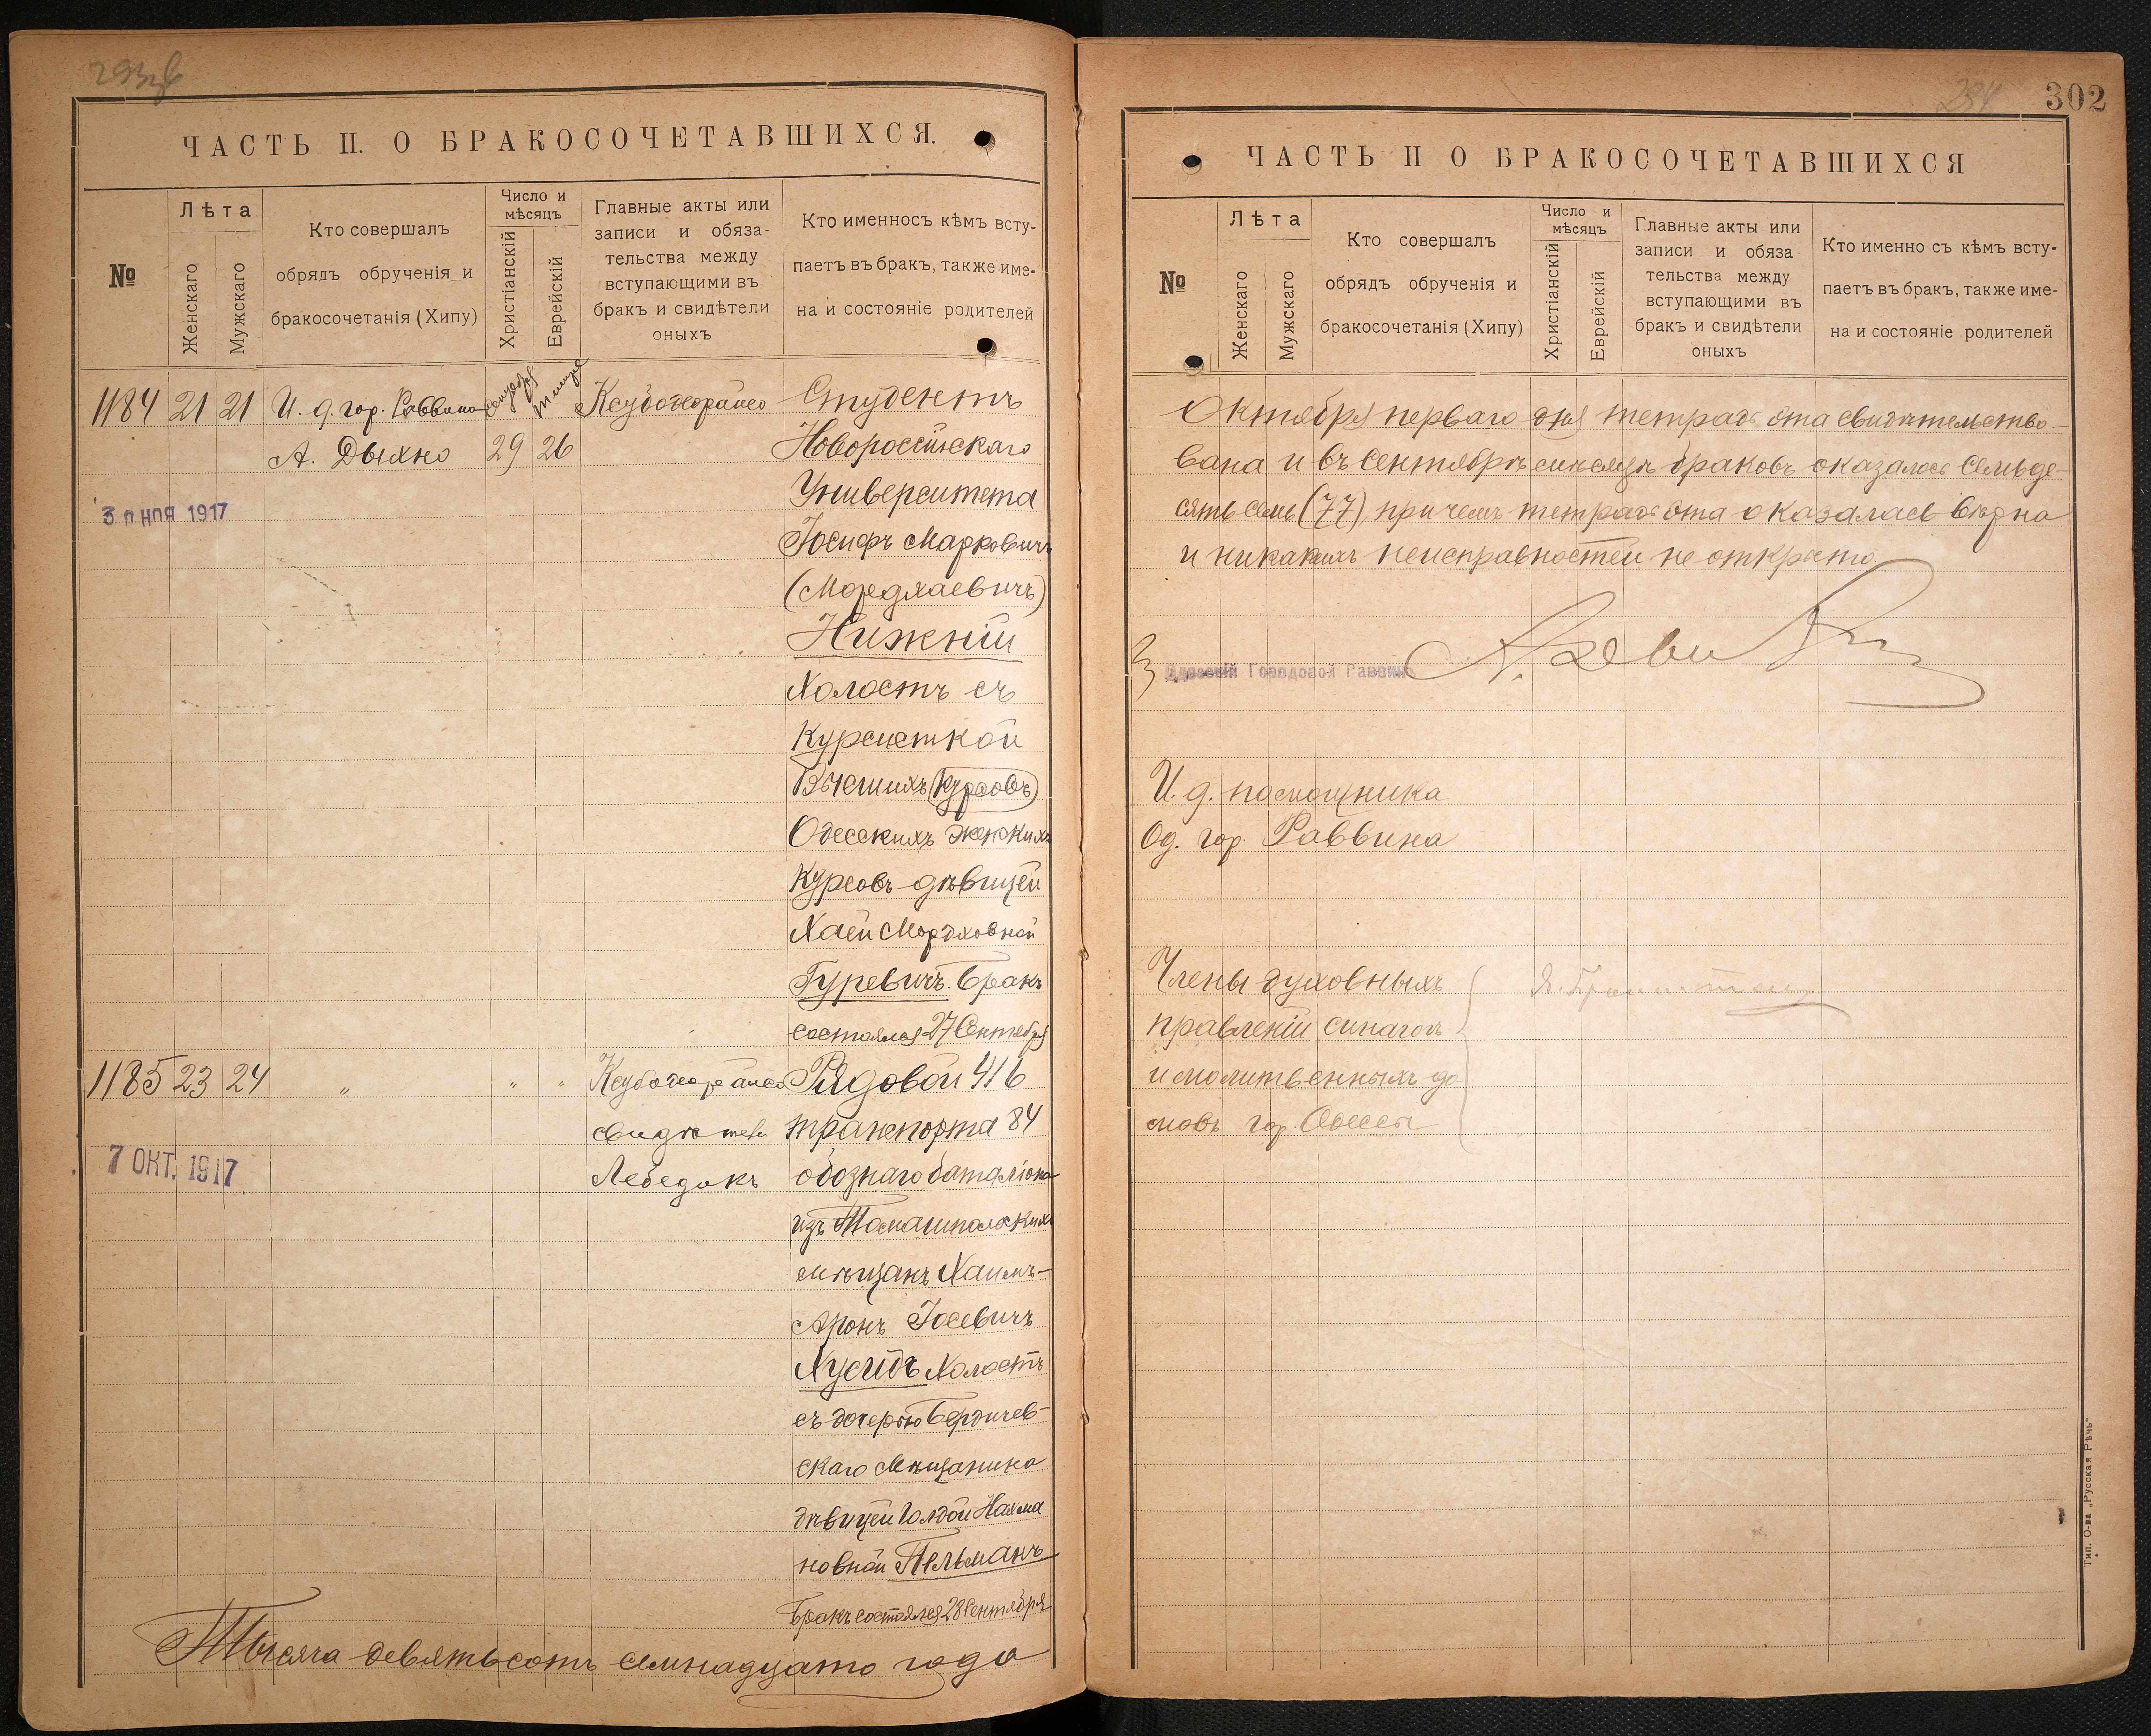 293 об
ЧАСТЬ II. О БРАКОСОЧЕТАВШИХСЯ.
№
Лѣта
Женскаго
Мужскаго
Кто совершалъ
обрядъ обрученія и
бракосочетанія (Хипу)
Число и
мѣсяцъ
Христіанскій
Еврейскій
Главные акты или
записи и обяза-
тельства между
вступающими въ
бракъ и свидѣтели
оныхъ
Кто именносъ кѣмъ всту-
паетъ въ бракъ, также име-
на и состояніе родителей
1184 21 21 И. д. гор. Раввина
А. Дыхно 29 26
1917
Студентъ
Новороссійскаго
Университета
Іосифъ Марковичъ
(Мордхаевичъ)
Нижній
Холостъ съ
Курсисткой
Высшихъ (Курсовъ)
Одесскихъ женскихъ
Курсовъ дѣвицей
Хаей Мордховной
Гуревичъ. Бракъ
состоялся 27 Сентября
1185 23 24 „ „ „
7 ОКТ. 1917
Лебедикъ
Рядовой 416
транспорта 84
обознаго баталіона
изъ Томашпольскихъ
мѣщанъ Хаимъ-
Аронъ Іосевичъ
Хусидъ Холостъ
съ дочерью Бердичев-
скаго Мѣщанина
дѣвицей Голдой Нахма
новной Пельманъ
Бракъ состоялся 28 Сентября
Тысяча девятьсотъ семнадцато года
294
302
ЧАСТЬ II О БРАКОСОЧЕТАВШИХСЯ
№
Лѣта
Женскаго
Мужскаго
Кто совершалъ
обрядъ обрученія и
бракосочетанія (Хипу)
Число и
мѣсяцъ
Христіанскій
Еврейскій
Главные акты или
записи и обяза
тельства между
вступающими въ
бракъ и свидѣтели
оныхъ
Кто именно съ кѣмъ всту-
паетъ въ бракъ, также име-
на и состояніе родителей
Октября перваго дня тетрадь эта свидѣтельство-
вана и въ Сентябрѣ мѣсяцѣ браковъ оказалось Семьде-
сять семь (77), при чемъ тетрадь эта оказалась вѣрна
и никакихъ неисправностей не открыто.
Одесскій Городовой Раввинъ
И. д. помощника
Од. гор. Раввина
Члены духовныхъ
правленій синагогъ
и молитвенныхъ до
мовъ гор. Одессы
Тип. О-ва „Русская Рѣчь"